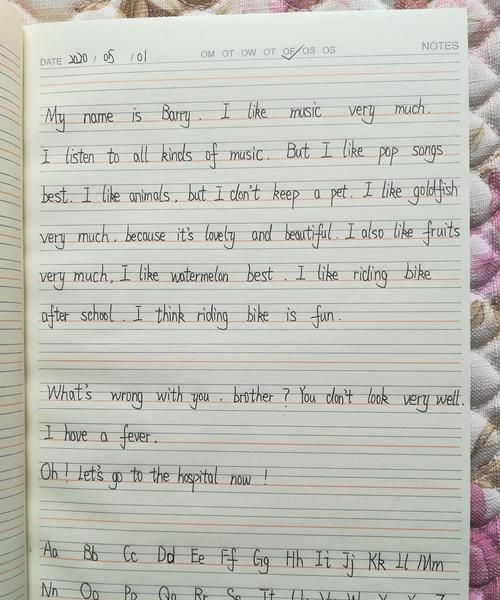 DATE 2020 / 05 / 01 OM OT OW OT OF OS OS NOTES
My name is Barry. I like music very much.
I listen to all kinds of music. But I like pop songs
best. I like animals, but I don't keep a pet. I like goldfish
very much, because it's lovely and beautiful. I also like fruits
very much, I like watermelon best. I like riding bike
after school. I think riding bike is fun.
What's wrong with you, brother? You don't look very well.
I have a fever.
Oh! Let's go to the hospital now!
Aa Bb Cc Dd Ee Ff Gg Hh Ii Jj Kk Ll Mm
Nn Oo Pp Qq Rr Ss Tt Uu Vv Ww